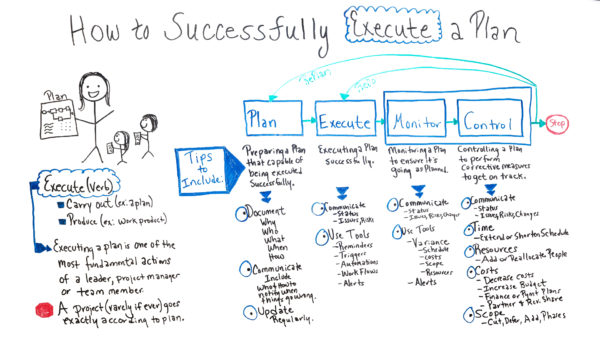 How to Successfully Execute a Plan
Plan
Execute (verb)
Carry out (ex: a plan)
Produce (ex: work product)
Executing a plan is one of the
most fundamental actions
of a leader, project manager
or team member.
A project (rarely if ever) goes
exactly according to plan.
Tips
to
Include:
Plan
Execute
Monitor
Control
Stop
Preparing a Plan
that capable of
being executed
Successfully.
Document
Why
Who
What
When
How
Communicate
Include
what How to
notify when
things go wrong.
Update
Regularly.
Executing a Plan
Successfully.
Communicate
-Status
-Issues, Risks
Use Tools
-Reminders
-Triggers
-Automations
-Work Flows
-Alerts
Monitoring a Plan
to ensure it's
going as Planned.
Communicate
-Status
-Issues, Risks, Changes
Use Tools
-Variance
-Schedule
-Costs
-Scope
-Resources
-Alerts
Controlling a Plan
to perform
corrective measures
to get on track.
Communicate
-Status
-Issues, Risks, Changes
Time
-Extend or Shorten Schedule
Resources
-Add or Reallocate People
Costs
-Decrease Costs
-Increase Budget
-Finance or Pymt Plans
-Partner & Risk Share
Scope
-Cut, Defer, Add, Phases